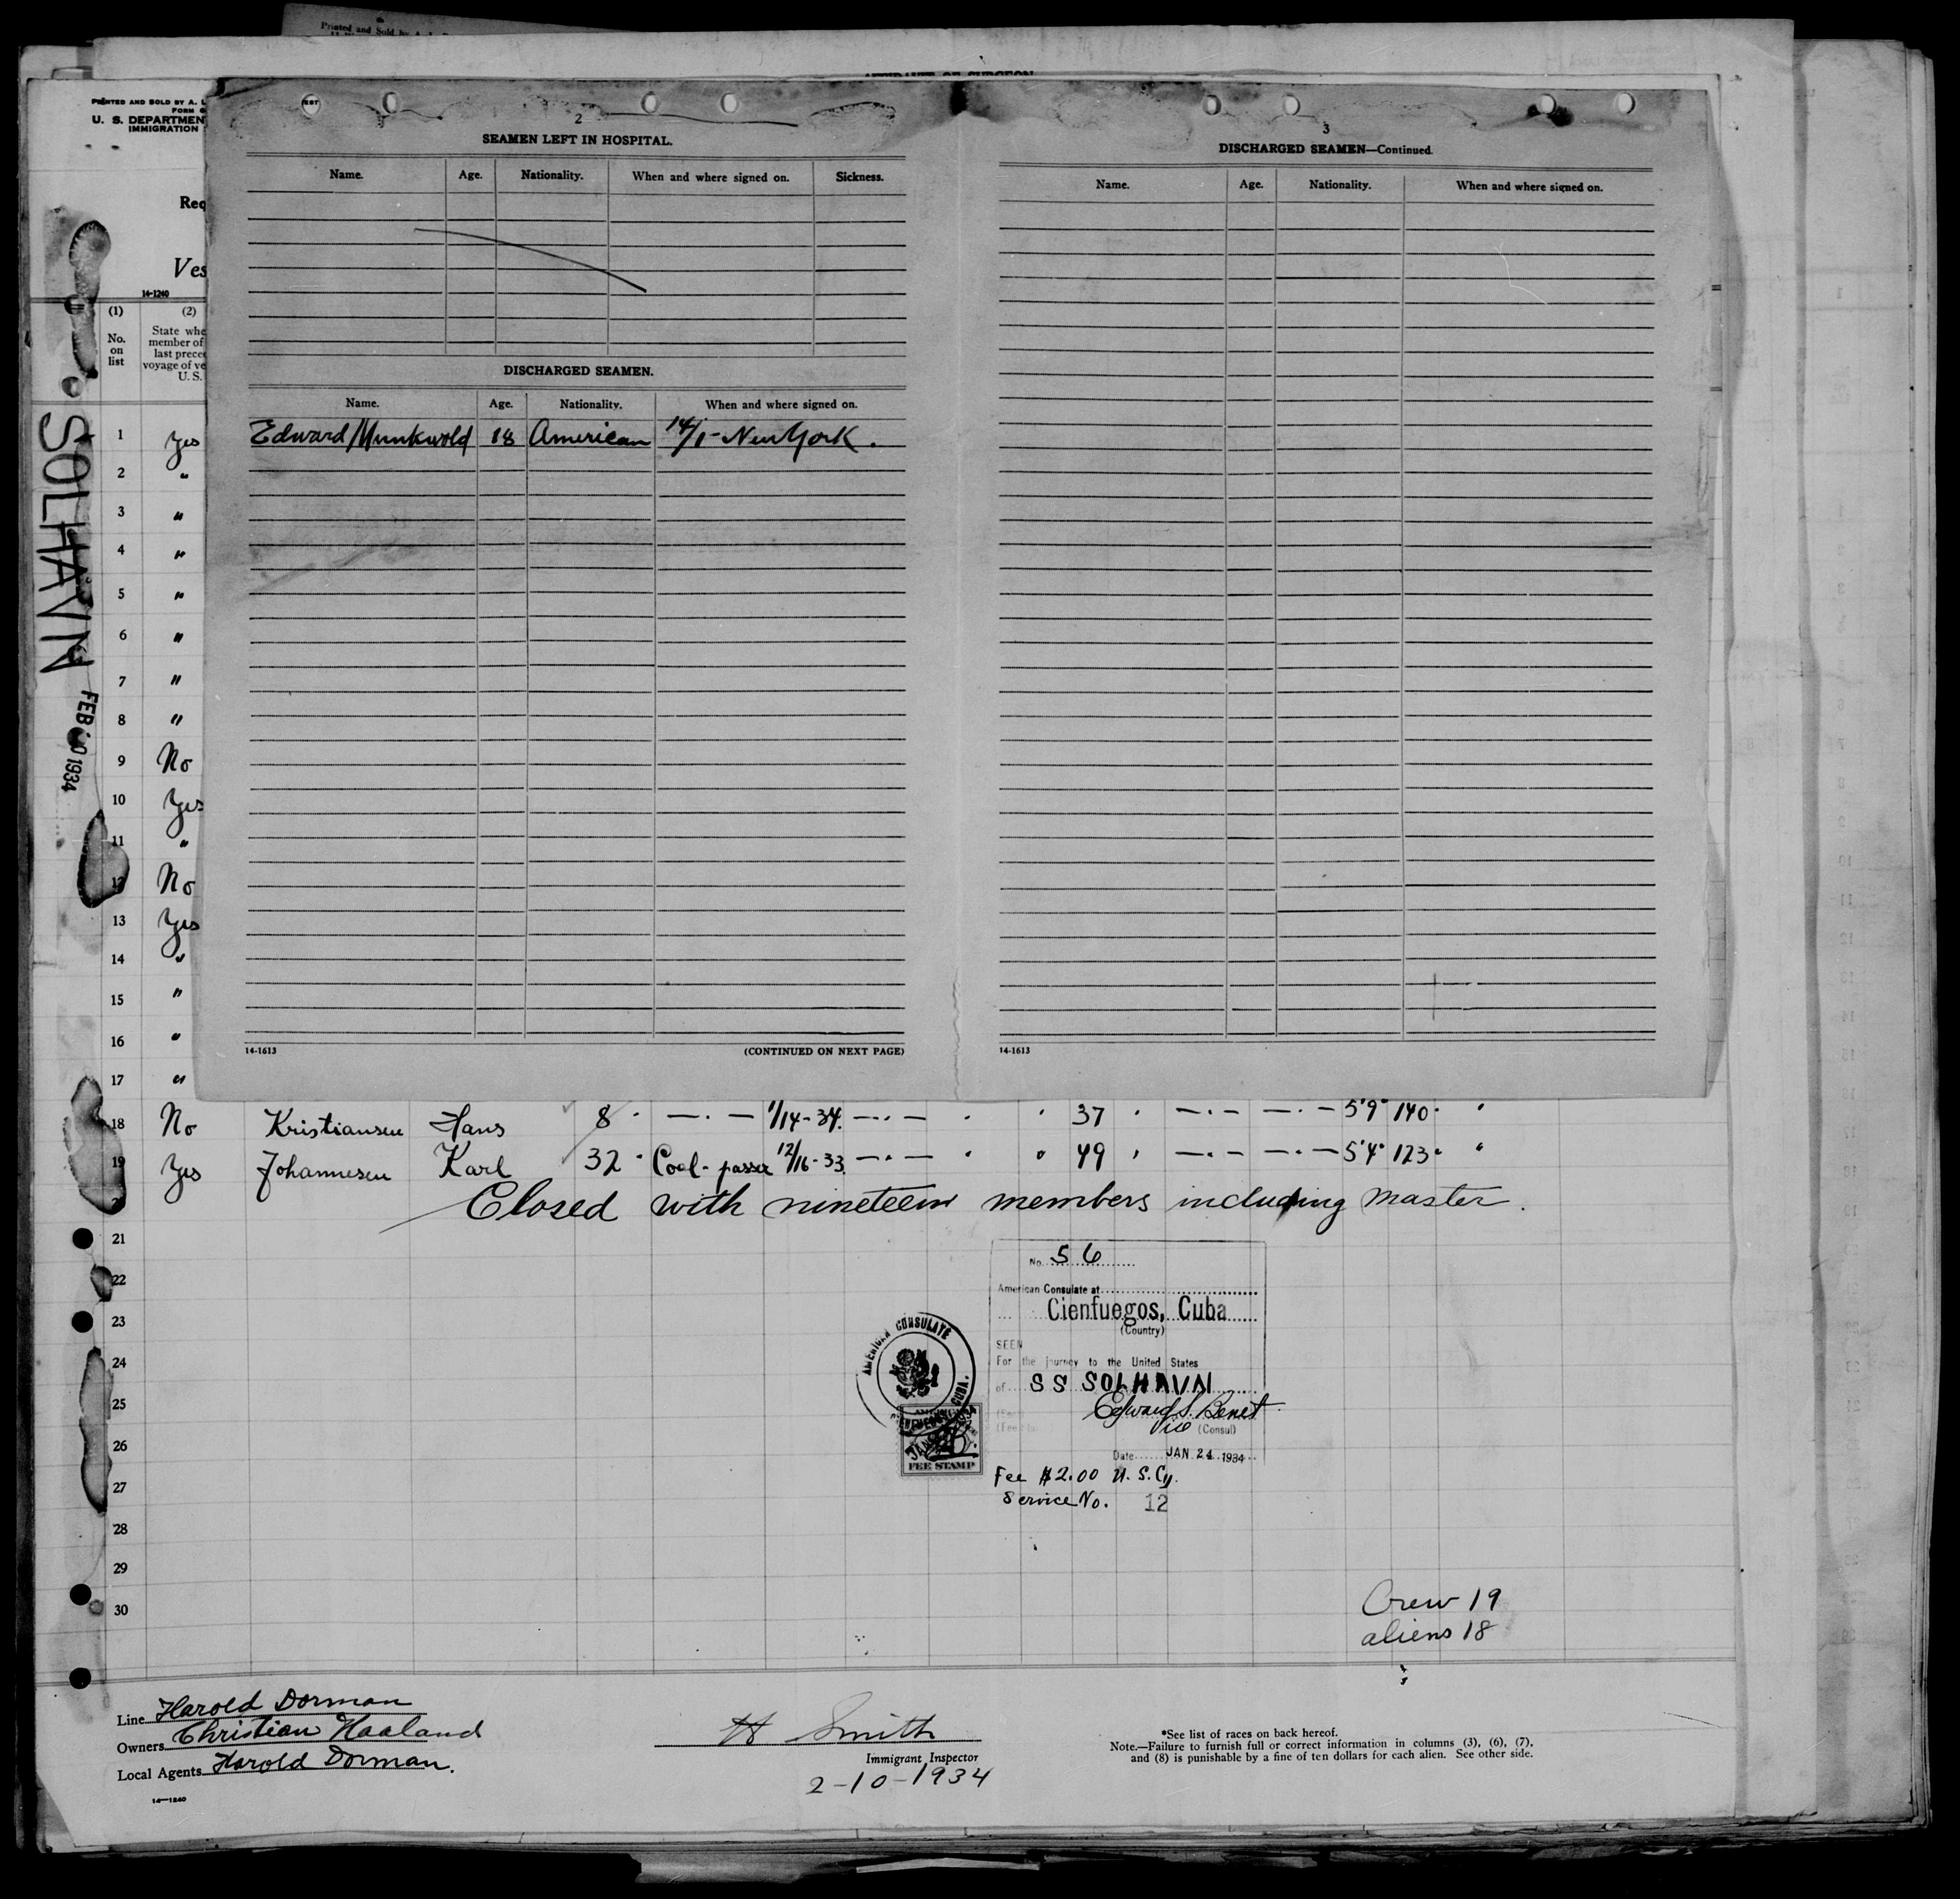 Printed and Sold by A. L.
AFFIDAVIT OF SURGEON
PRINTED AND SOLD BY A. L
FORM 6
U. S. DEPARTMEN
IMMIGRATION
Req
Ves
14-1240
(1) (2)
No. on list
State whe
member of
last prece
voyage of ve
U. S.
SOLHAVN
FEB 10 1934
2
SEAMEN LEFT IN HOSPITAL.
Name. Age. Nationality. When and where signed on. Sickness.
DISCHARGED SEAMEN.
Name. Age. Nationality. When and where signed on.
Edward Munkwold 18 American 14/1- New York.
14-1613 (CONTINUED ON NEXT PAGE)
3
DISCHARGED SEAMEN—Continued.
Name. Age. Nationality. When and where signed on.
14-1613
1 Yes
2 "
3 "
4 "
5 "
6 "
7 "
8 "
9 No
10 Yes
11 "
12 No
13 Yes
14 "
15 "
16 "
17 "
18 No Kristiansen Hans 8 " —.— 1/14-34. —..— " " 37 " —.— —.— 5'9" 140 " "
19 Yes Johannesen Karl 32 " Coal-passer 12/16-33. —..— " " 49 " —.— —.— 5'4" 123 " "
Closed with nineteen members including master.
21
22
23
24
25
26
27
28
29
30
No. 56
American Consulate at
Cienfuegos, Cuba
(Country)
SEEN
For the journey to the United States
of SS SOLHAVN
Edward S. Benet
Vice (Consul)
Date JAN 24 1934
Fee $2.00 U. S. Cy.
Service No. 12
AMERICAN CONSULATE
CIENFUEGOS, CUBA.
FEE STAMP
Crew 19
aliens 18
Line Harold Dorman
Owners Christian Haaland
Local Agents Harold Dorman.
14—1240
H Smith
Immigrant Inspector
2-10-1934
*See list of races on back hereof.
Note.—Failure to furnish full or correct information in columns (3), (6), (7),
and (8) is punishable by a fine of ten dollars for each alien. See other side.